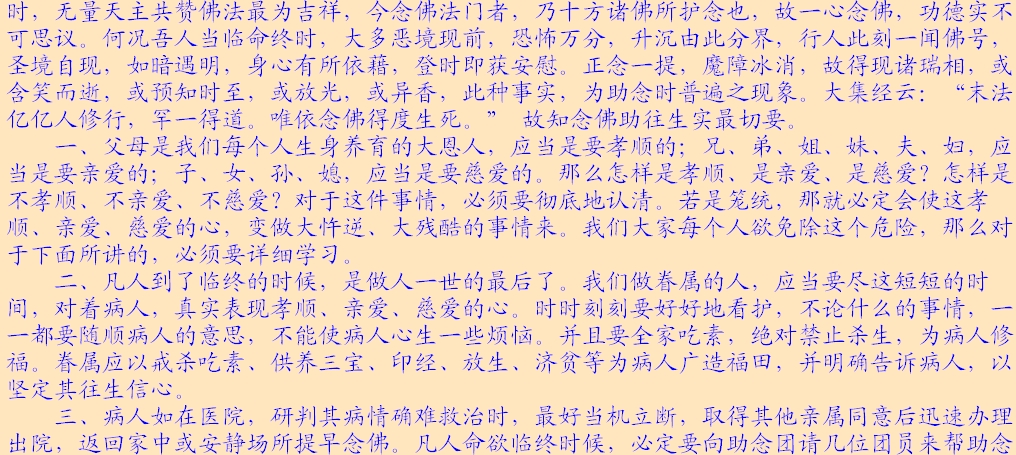 时，无量天主共赞佛法最为吉祥，今念佛法门者，乃十方诸佛所护念也，故一心念佛，功德实不
可思议。何况吾人当临命终时，大多恶境现前，恐怖万分，升沉由此分界，行人此刻一闻佛号，
圣境自现，如暗遇明，身心有所依藉，登时即获安慰。正念一提，魔障冰消，故得现诸瑞相，或
含笑而逝，或预知时至，或放光，或异香，此种事实，为助念时普遍之现象。大集经云：“末法
亿亿人修行，罕一得道。唯依念佛得度生死。” 故知念佛助往生实最切要。
一、父母是我们每个人生身养育的大恩人，应当是要孝顺的；兄、弟、姐、妹、夫、妇，应
当是要亲爱的；子、女、孙、媳，应当是要慈爱的。那么怎样是孝顺、是亲爱、是慈爱？怎样是
不孝顺、不亲爱、不慈爱？对于这件事情，必须要彻底地认清。若是笼统，那就必定会使这孝
顺、亲爱、慈爱的心，变做大忤逆、大残酷的事情来。我们大家每个人欲免除这个危险，那么对
于下面所讲的，必须要详细学习。
二、凡人到了临终的时候，是做人一世的最后了。我们做眷属的人，应当要尽这短短的时
间，对着病人，真实表现孝顺、亲爱、慈爱的心。时时刻刻要好好地看护，不论什么的事情，一
一都要随顺病人的意思，不能使病人心生一些烦恼。并且要全家吃素，绝对禁止杀生，为病人修
福。眷属应以戒杀吃素、供养三宝、印经、放生、济贫等为病人广造福田，并明确告诉病人，以
坚定其往生信心。
三、病人如在医院，研判其病情确难救治时，最好当机立断，取得其他亲属同意后迅速办理
出院，返回家中或安静场所提早念佛。凡人命欲临终时候，必定要向助念团请几位团员来帮助念